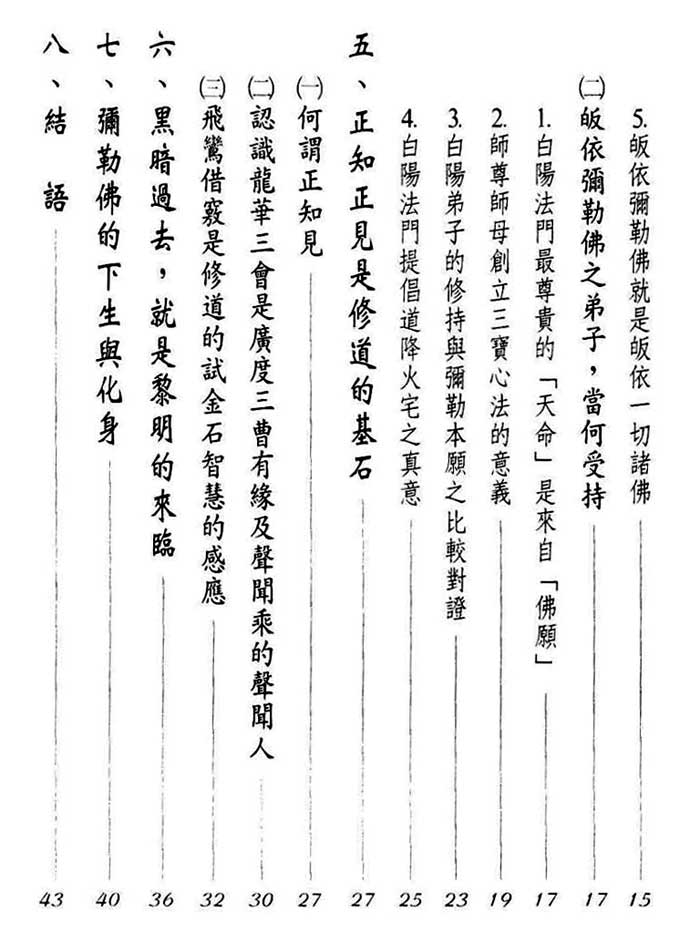 5.皈依彌勒佛就是皈依一切諸佛 15
㈡皈依彌勒佛之弟子，當何受持 17
1.白陽法門最尊貴的「天命」是來自「佛願」 17
2.師尊師母創立三寶心法的意義 19
3.白陽弟子的修持與彌勒本願之比較對證 23
4.白陽法門提倡道降火宅之真意 25
五、正知正見是修道的基石 27
㈠何謂正知見 27
㈡認識龍華三會是廣度三曹有緣及聲聞乘的聲聞人 30
㈢飛鸞借竅是修道的試金石智慧的感應 32
六、黑暗過去，就是黎明的來臨 36
七、彌勒佛的下生與化身 40
八、結語 43